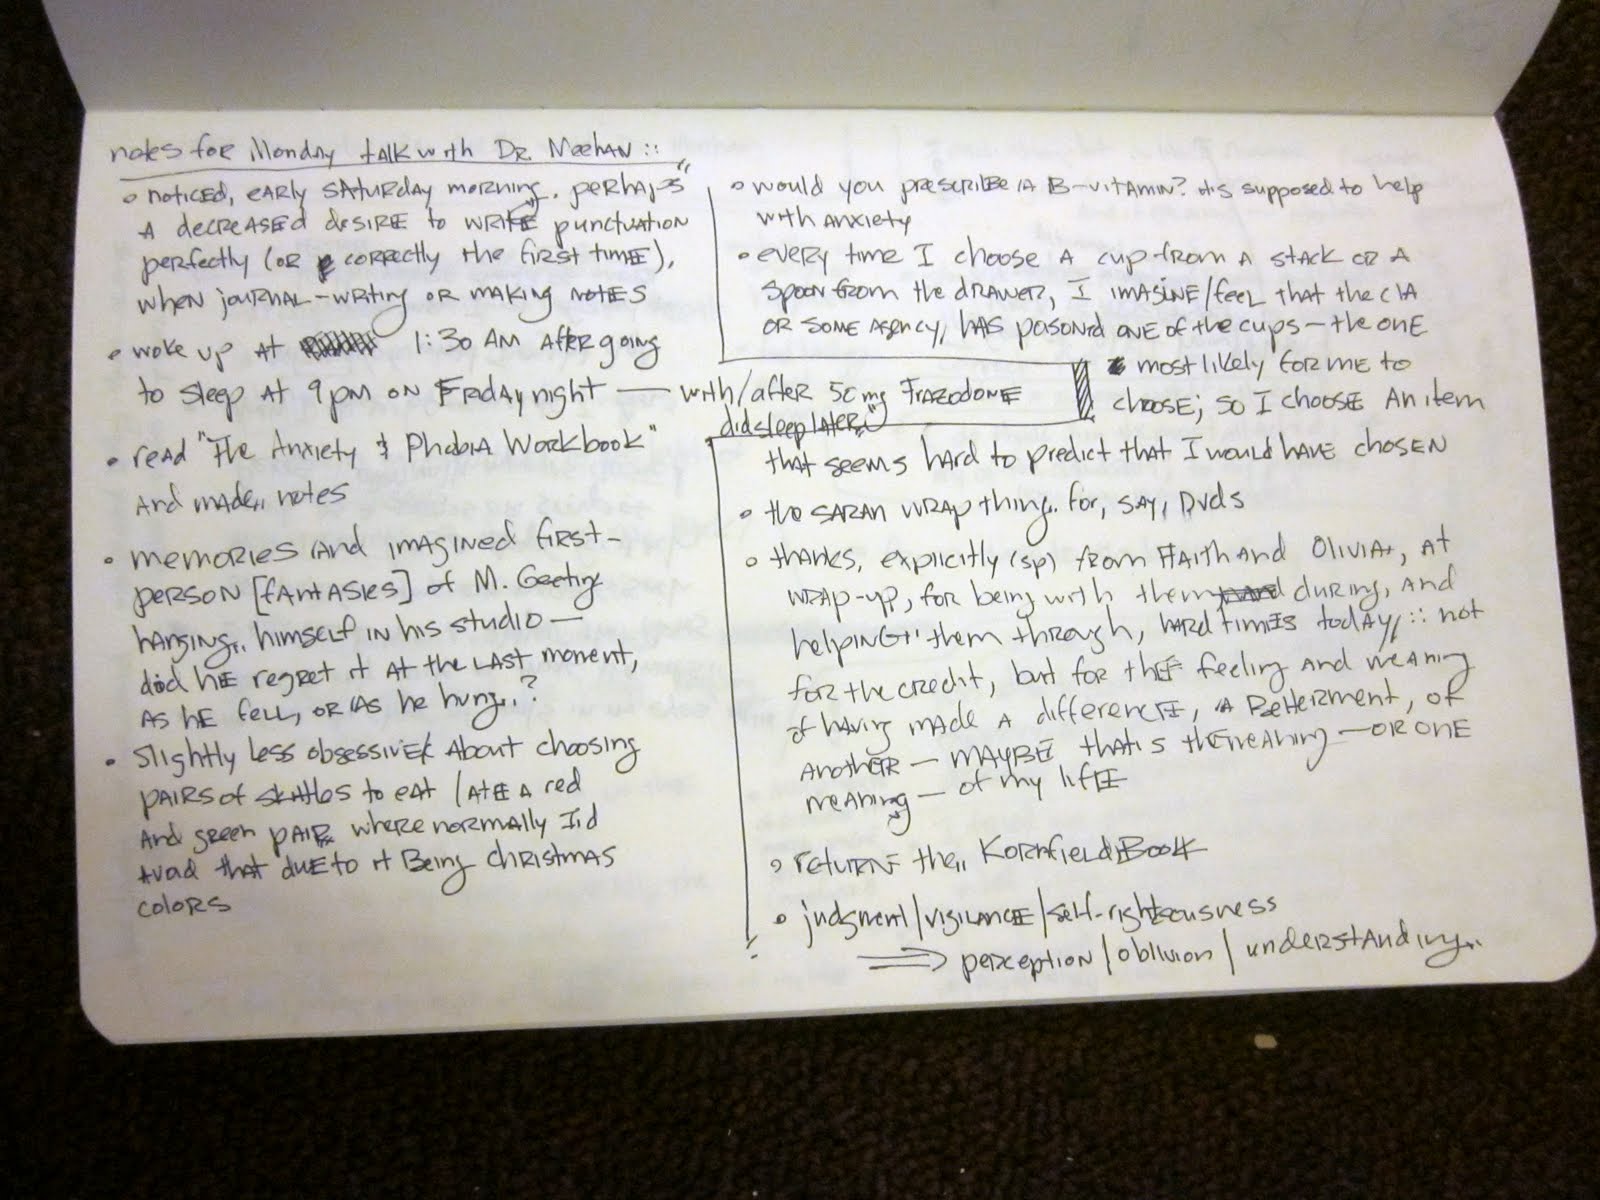 notes for Monday talk with Dr. Meehan ::
• noticed, early Saturday morning, perhaps
a decreased desire to write punctuation
perfectly (or correctly the first time),
when journal-writing or making notes
• woke up at 1:30 AM after going
to sleep at 9 pm on Friday night — with/after 50 mg Trazodone
did sleep later
• read "The Anxiety & Phobia Workbook"
and made notes
• memories (and imagined first-
person [fantasies] of M. Geeting
hanging himself in his studio —
did he regret it at the last moment,
as he fell, or as he hung..?
• slightly less obsessive about choosing
pairs of skittles to eat / ate a red
and green pair where normally I'd
avoid that due to it being christmas
colors
• would you prescribe a B-vitamin? it's supposed to help
with anxiety
• every time I choose a cup from a stack or a
spoon from the drawer, I imagine/feel that the CIA
or some agency, has poisond one of the cups — the one
most likely for me to
choose; so I choose an item
that seems hard to predict that I would have chosen
• the saran wrap thing.. for, say, DVDs
• thanks, explicitly (sp) from Faith and Olivia, at
wrap-up, for being with them during, and
helping them through, hard times today, :: not
for the credit, but for the feeling and meaning
of having made a difference, a betterment, of
another — maybe that is the meaning — or one
meaning — of my life
• return the,, Kornfield Book
• judgment / vigilance / self-righteousness
⟹ perception / oblivion / understanding..